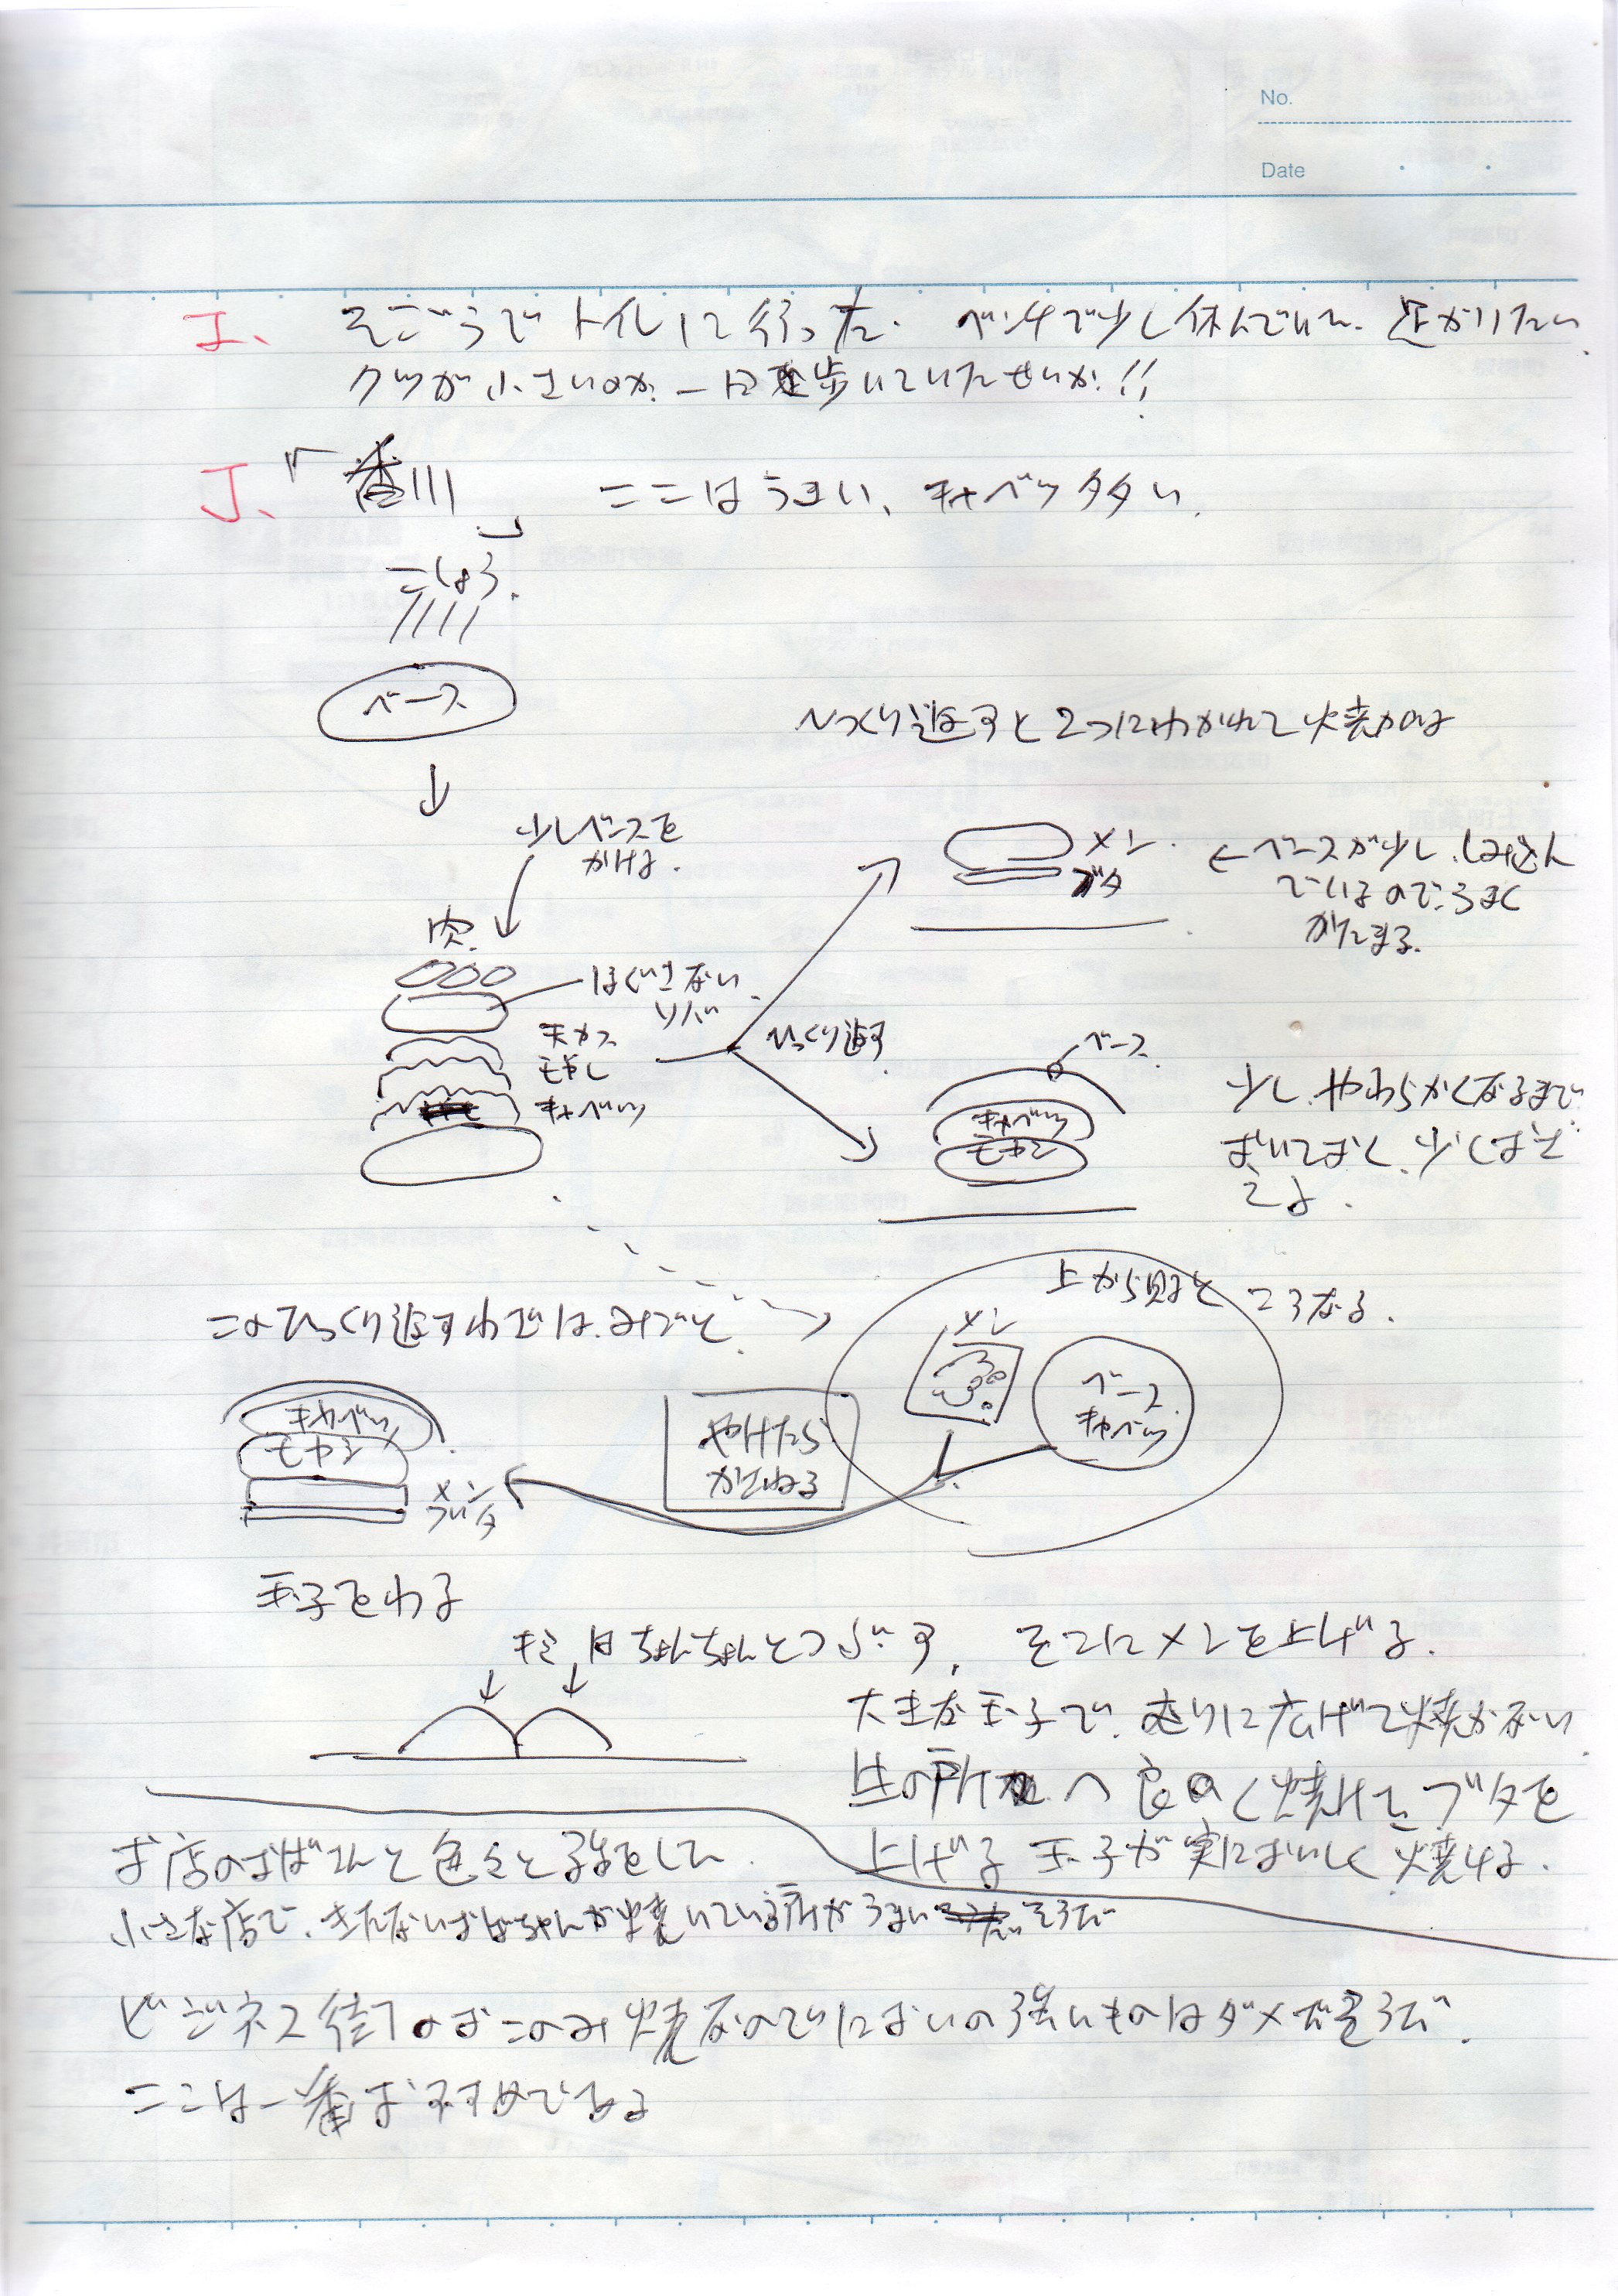 No.
Date
I、 そごうでトイレに行った. ベンチで少し休んでいた. 足がいたい
クツが小さいのか. 一日歩いていたせいか!!
J、「番川」 ここはうまい、キャベツ多い.
こしょう.
ベース
ひっくり返すと2つにわかれて焼かれる
少しベースを
かける.
メン
ブタ
←ベースが少ししみ込ん
でいるのでうまく
かたまる.
肉.
ほぐさない
ソバ
天カス
モヤシ
キャベツ
ひっくり返す
ベース
キャベツ
モヤシ
少しやわらかくなるまで
おいておく. 少しおさ
える.
このひっくり返すわざはみごと
上から見ると こうなる.
メン
ベース
キャベツ
やけたら
かさねる
キャベツ
モヤシ
メン
ブタ
玉子をわる
キミはちょんちょんとつぶす, そこにメンを上げる.
大きな玉子で. 広げて焼かない
生の所へ良く焼けたブタを
上げる 玉子が実においしく焼ける.
お店のおばさんと色々と話をした.
小さな店で、きたないおばちゃんが焼いている所がうまいそうだ
ビジネス街のおこのみ焼なのでにおいの強いものはダメだそうだ.
ここは一番お対めである